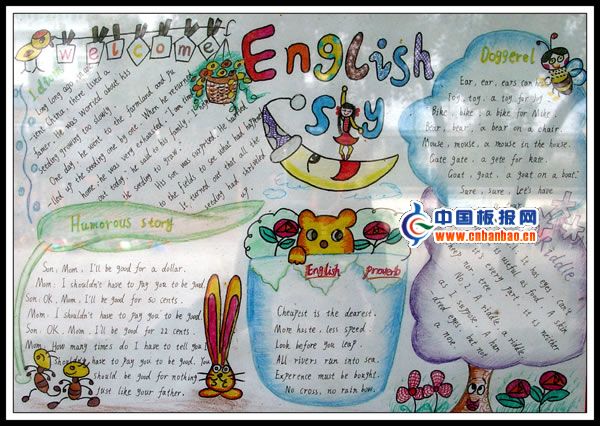 Welcome
English
sky
Idiom
Long long ago in
cient China, there lived a
famer. He was worried about his
seeding growing too slowly.
One day, he went to the farmland and pu
lled up the seeding one by one. When he returned
home he was very exhausted. "I am
out today," he said to his family. "I
the seeding to grow."
His son was surprised. He
to the fields to see what had happened
It turned out that all the
seeding had shriveled
Doggerel
Ear, ear, ears can hear
Toy, toy, a toy for Joy
Bike, bike, a bike for Mike.
Bear, bear, a bear on a chair.
Mouse, mouse, a mouse in the house.
Gate gate, a gete for kate.
Goat, goat, a goat on a boat.
Sure, sure, Let's have
中国板报网
www.cnbanbao.cn
Humorous story
Son: Mom, I'll be good for a dollar.
Mom: I shouldn't have to pay you to be good.
Son: OK, Mom, I'll be good for 50 cents.
Mom: I shouldn't have to pay you to be good.
Son: OK, Mom, I'll be good for 22 cents.
Mom: How many times do I have to tell you I
shouldn't have to pay you to be good. You
should be good for nothing
just like your father.
English proverb
Cheapest is the dearest.
More haste, less speed.
Look before you leap.
All rivers run into sea.
Experence must be bought.
No cross, no rain bow.
Riddle
It has eyes can't
is useful as food. A skin
every part, it is neather
No. 2. A riddle, a riddle,
as I suppose. A hun
dred eyes but not
a nose.